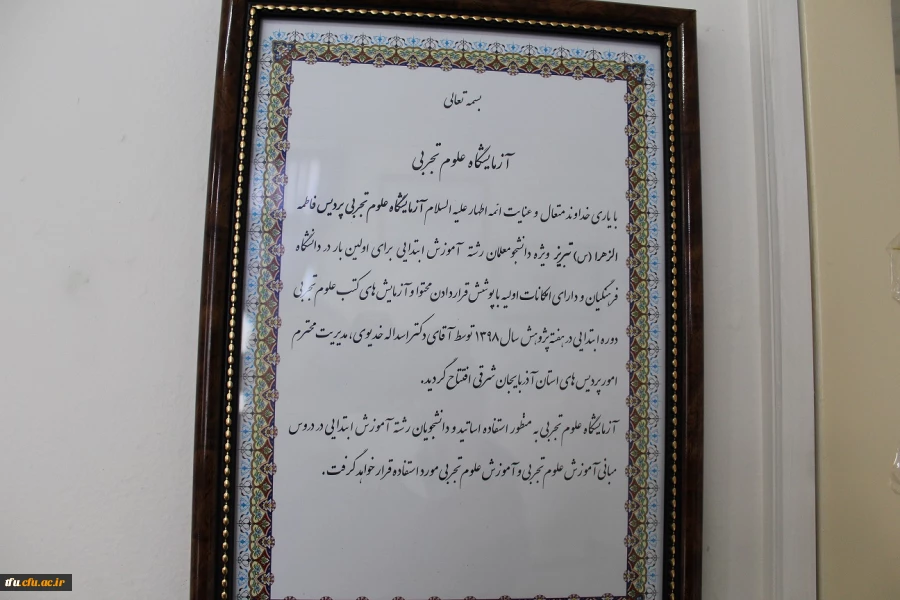 بسمه تعالی
آزمایشگاه علوم تجربی
با یاری خداوند متعال و عنایت ائمه اطهار علیه السلام آزمایشگاه علوم تجربی پردیس فاطمه
الزهرا (س) تبریز ویژه دانشجومعلمان رشته آموزش ابتدایی برای اولین بار در دانشگاه
فرهنگیان و دارای امکانات اولیه با پوشش قرار دادن محتوا و آزمایش های کتب علوم تجربی
دوره ابتدایی در هفته پژوهش سال ۱۳۹۸ توسط آقای دکتر اسداله خدیوی، مدیریت محترم
امور پردیس های استان آذربایجان شرقی افتتاح گردید.
آزمایشگاه علوم تجربی به منظور استفاده اساتید و دانشجویان رشته آموزش ابتدایی در دروس
مبانی آموزش علوم تجربی و آموزش علوم تجربی مورد استفاده قرار خواهد گرفت.
tfu.cfu.ac.ir